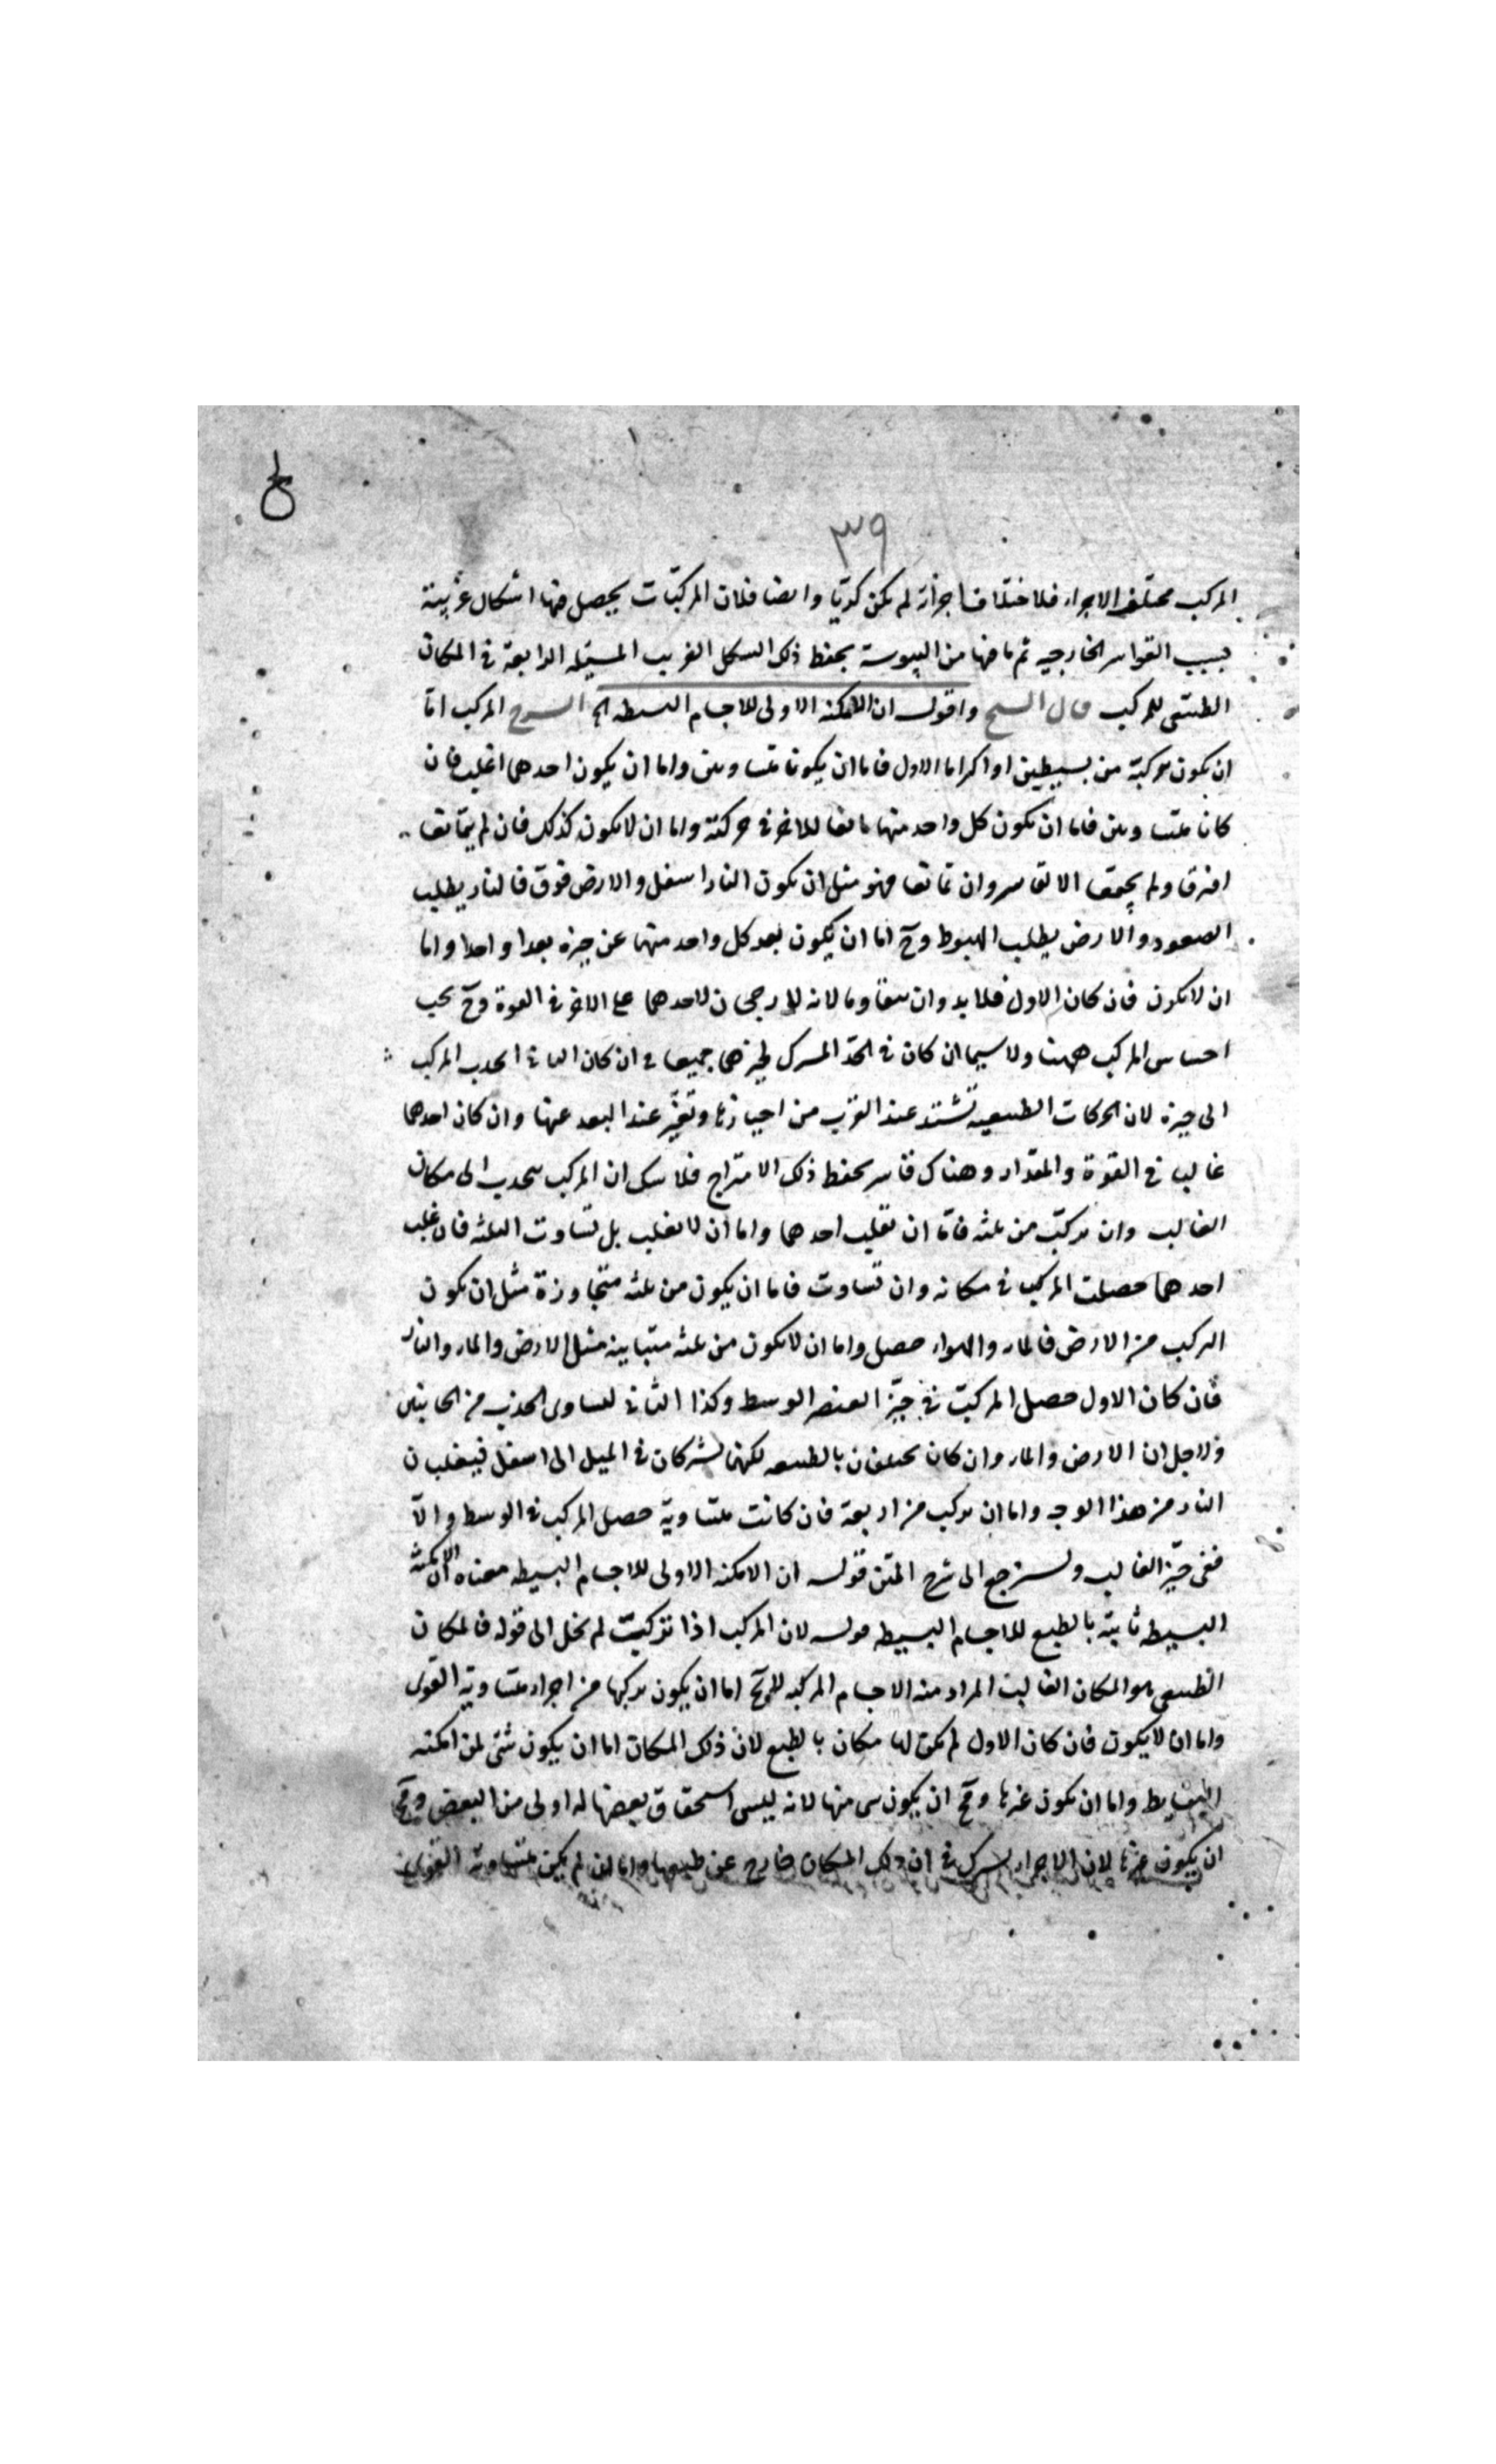 ٣٩
المركب مختلف الاجزاء فلاختلاف اجزائه لم يكن كريا وايضا فلان المركبات يحصل فيها اشكال غريبة
بسبب القواسر الخارجيه ثم ما فيها من اليبوسة يحفظ ذلك الشكل الغريب المسئله الرابعة فى المكان
الطبيعى للمركب قال الشيخ واقول ان الامكنه الاولى للاجسام البسيطه الخ الشرح المركب اما
ان يكون مركبة من بسيطين او اكثر اما الاول فاما ان يكونا متساويين واما ان يكون احدهما اغلب فان
كانا متساويين فاما ان يكون كل واحد منهما مانعا للاخر فى حركته واما ان لا يكون كذلك فان لم يتمانعا
افترقا ولم يجتمعا الا لقاسر وان تمانعا فهو مثل ان يكون النار اسفل والارض فوق فالنار يطلب
الصعود والارض يطلب الهبوط وح اما ان يكون بعد كل واحد منهما عن حيزه بعدا واحدا واما
ان لا يكون فان كان الاول فلا بد وان يتقاوما لانه لا رجحان لاحدهما على الاخر فى القوة وح يجب
احتباس المركب ههنا ولا سيما ان كان فى الحد المشترك لحيزهما جميعا وان كان الثانى انجذب المركب
الى حيزه لان الحركات الطبيعيه تشتد عند القرب من احيازها وتفتر عند البعد عنها وان كان احدهما
غالب فى القوة والمقدار وهناك قاسر يحفظ ذلك الامتزاج فلا شك ان المركب ينجذب الى مكان
الغالب وان تركب من ثلثه فاما ان تغلب احدهما واما ان لا تغلب بل تساوت الثلثه فان غلب
احدهما حصلت المركب فى مكانه وان تساوت فاما ان يكون من ثلثه متجاوزة مثل ان يكون
التركيب من الارض فالماء والهواء حصل واما ان لا يكون من ثلثه متباينه مثل الارض والماء والنار
فان كان الاول حصل المركب فى حيز العنصر الوسط وكذا الثانى لتساوى الجذب من الجانبين
ولاجل ان الارض والماء وان كان يختلفان بالطبيعه لكنهما يشتركان فى الميل الى اسفل فيغلبان
النار من هذا الوجه واما ان تركب من اربعة فان كانت متساوية حصل المركب فى الوسط والا
ففى حيز الغالب ولنرجع الى شرح المتن قوله ان الامكنه الاولى للاجسام البسيطه معناه ان الامكنة
البسيطه ثابتة بالطبع للاجسام البسيطه قوله لان المركب اذا تركبت لم يخل الى قوله فالمكان
الطبيعى هو المكان الغالب المراد منه الاجسام المركبه اما ان يكون تركبها من اجزاء متساوية القوى
واما ان لا يكون فان كان الاول لم يكن لها مكان بالطبع لان ذلك المكان اما ان يكون شئ من امكنه
البسايط واما ان يكون غيرها وح ان يكون شى منها لانه ليس استحقاق بعضها له اولى من البعض وح
ان يكون غيرها لان الاجزاء يشترك فى ان ذلك المكان خارج عن طبعها واما ان لم يكن متساوية القوى